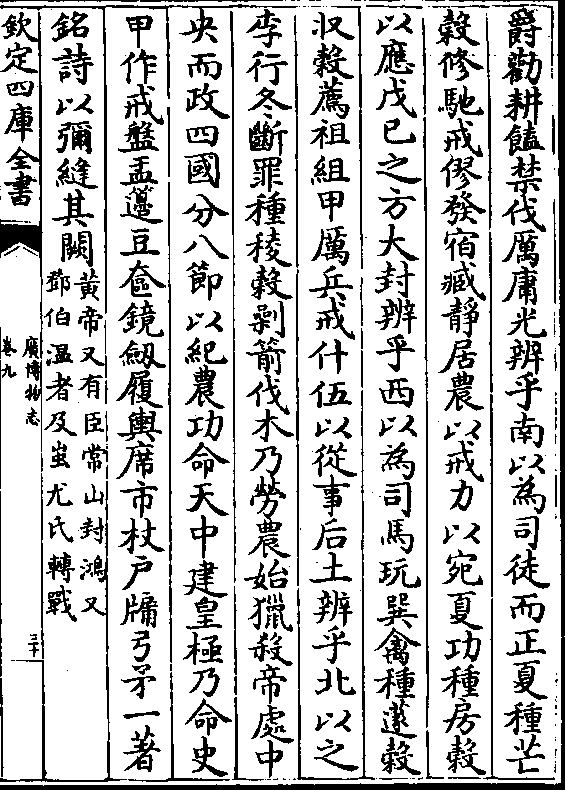 爵勸耕饁禁伐厲庸光辨乎南以為司徒而正夏種芒
榖修馳戒僇發宿臧靜居農以戒力以宛夏功種房榖
以應戊己之方大封辨乎西以為司馬玩巽禽種䆳榖
収榖薦祖組甲厲兵戒什伍以從事后土辨乎北以之
李行冬斷罪種稜榖剝箭伐木乃勞農始獵殺帝處中
央而政四國分八節以紀農功命天中建皇極乃命史
甲作戒盤盂籩豆奩鏡劒履輿席市杖戶牖弓矛一著
銘詩以彌縫其闕黃帝又有臣常山封鴻又
鄧伯溫者及蚩尤氏轉戰
欽定四庫全書
廣博物志
卷九
二十